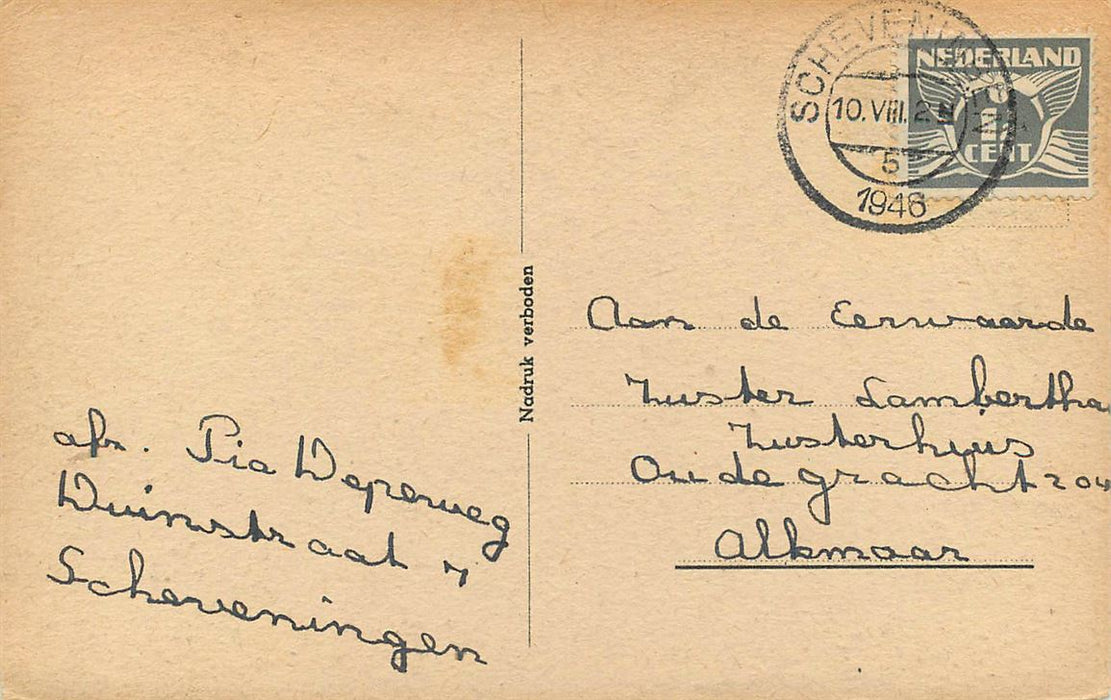 SCHEVENINGEN
10.VIII.2
5
1946
NEDERLAND
1½
CENT
Nadruk verboden
Aan de Eerwaarde
Zuster Lambertha
Zusterhuis
Oudegracht 204
Alkmaar
afz. Pia Weperweg
Duinstraat 7
Scheveningen